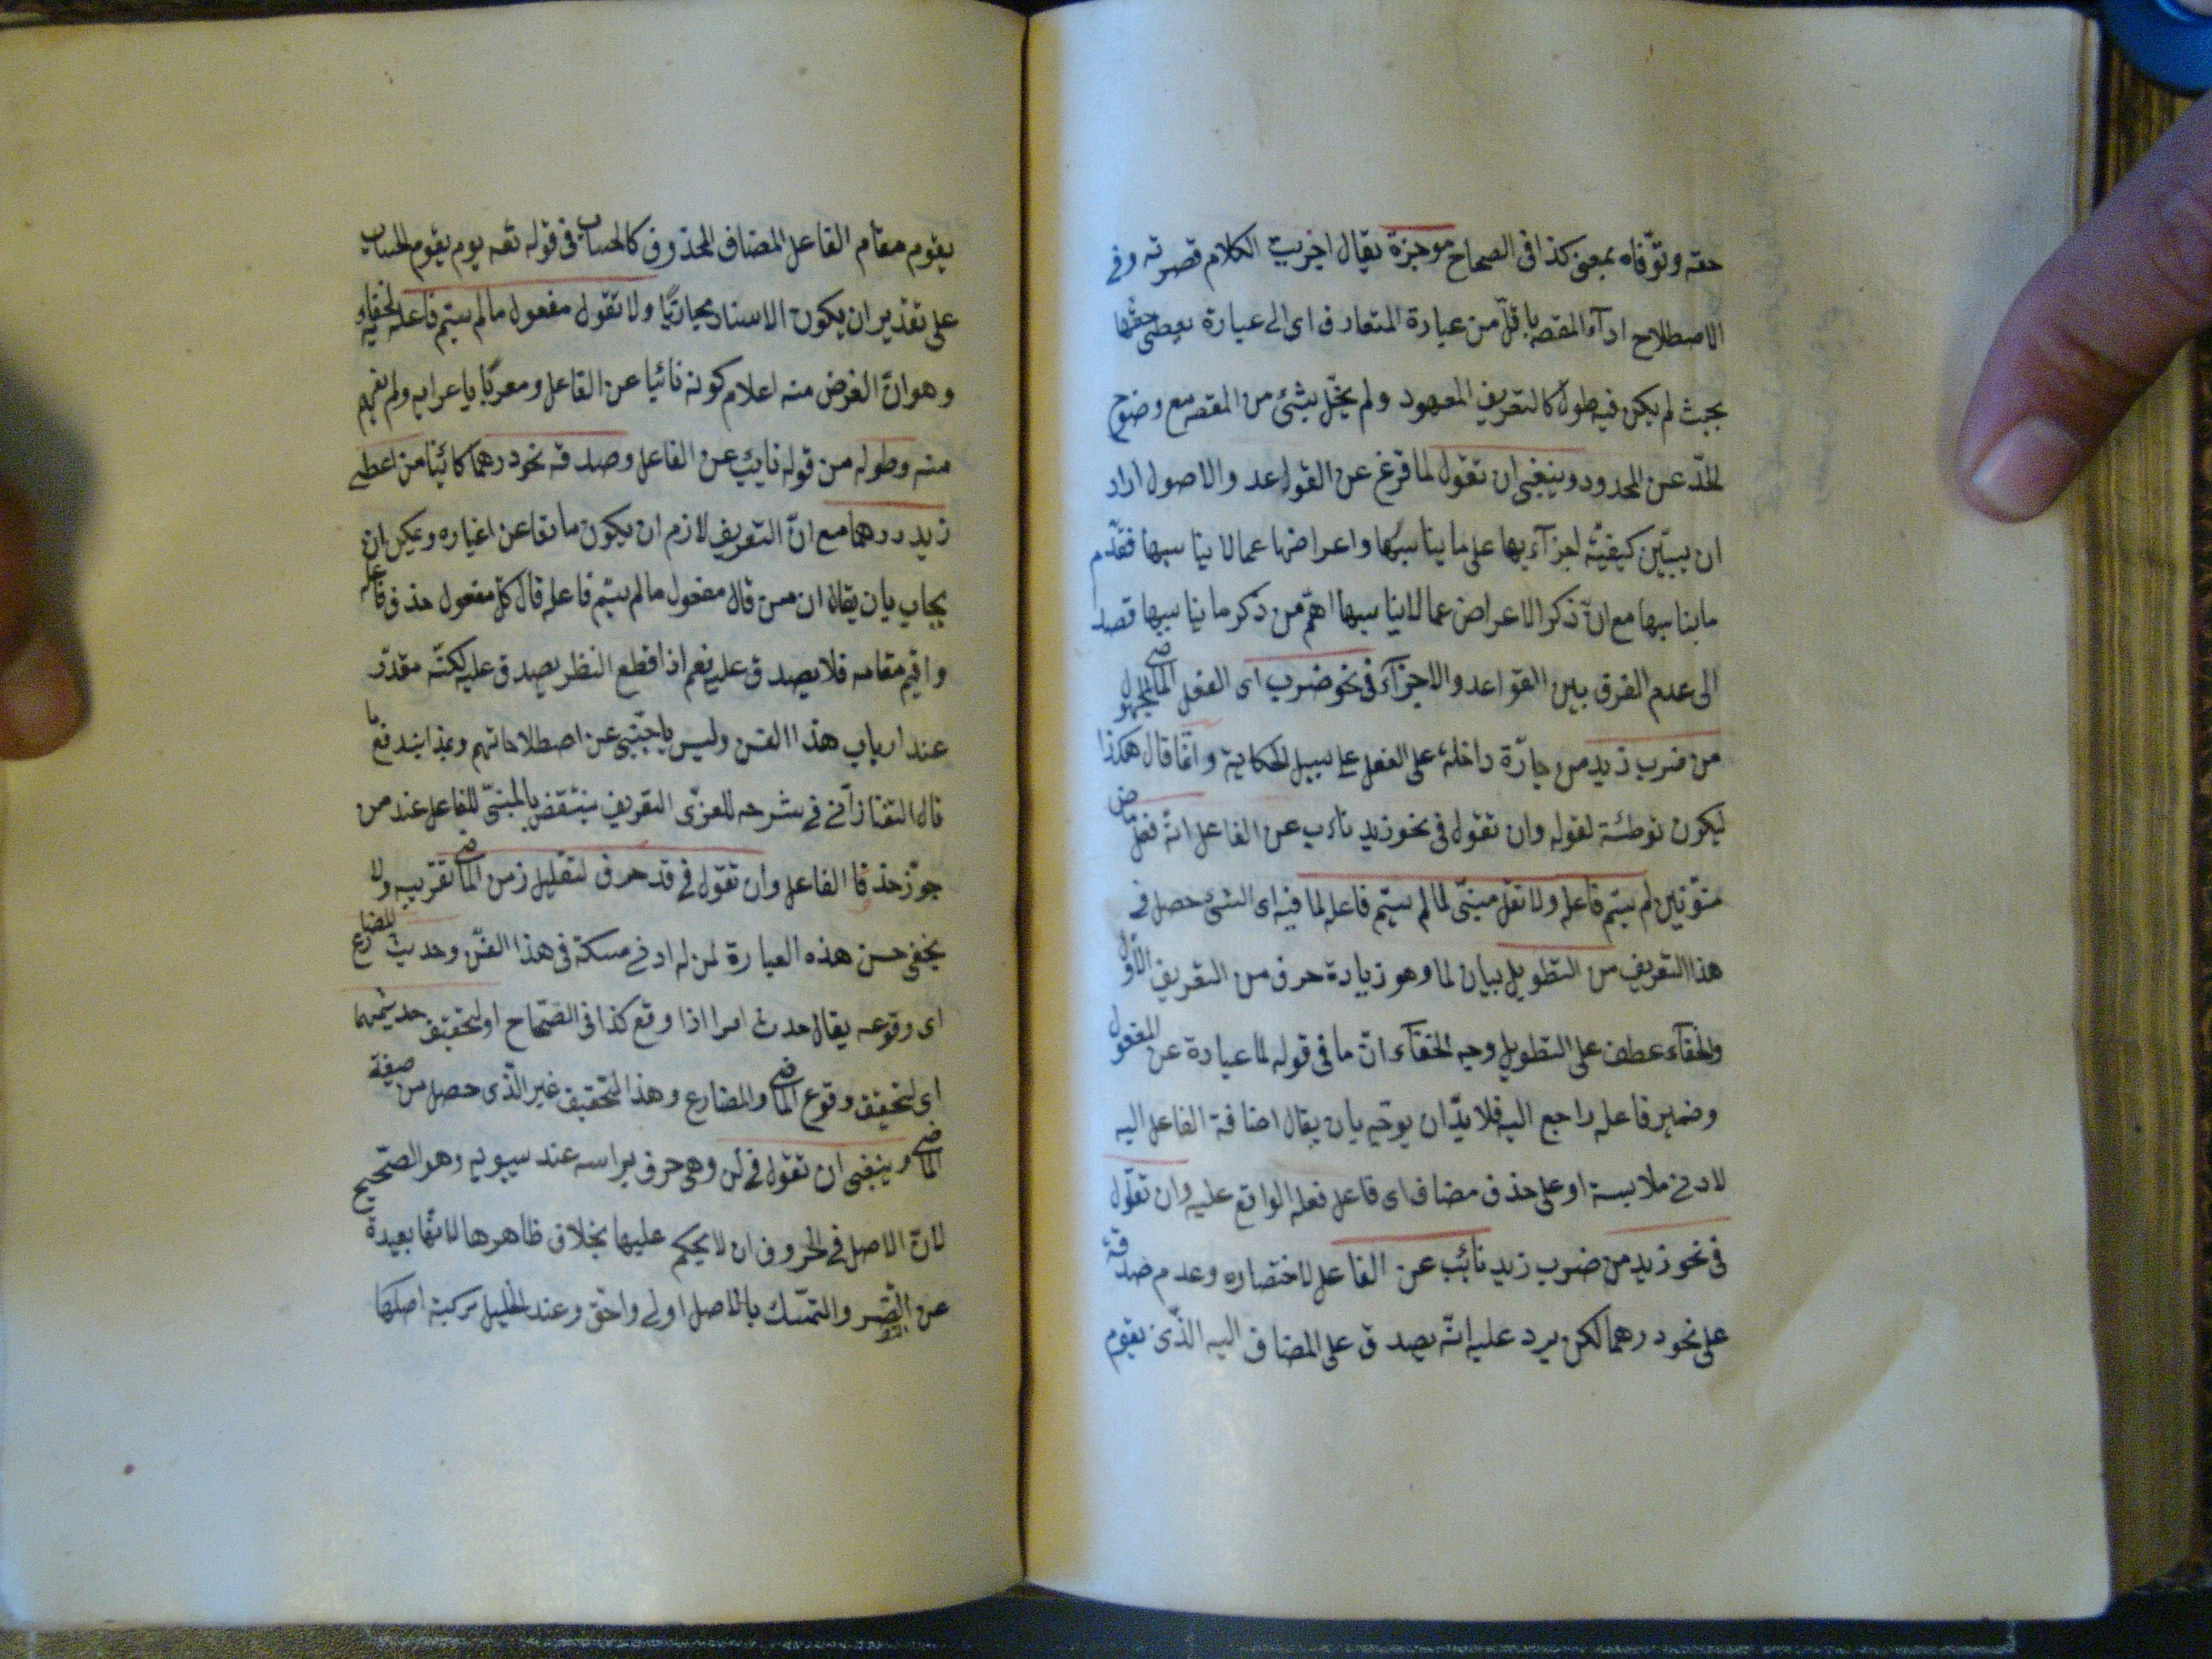 حقه وتوفاه بمعنى كذا فى الصحاح موجزة يقال اجزيت الكلام قصرته وفى
الاصطلاح ادآء المقصد باقل من عبارة المتعارف اى الى عبارة يعطى حقها
بحيث لم يكن فيه طول كالتعريف المعهود ولم يخل بشئ من المقصد مع وضوح
الحد عن المحدود وينبغى ان تقول لما فرغ عن القواعد والاصول اراد
ان يبين كيفية اجزآءيها على ما يناسبها واعراضها عما لا يناسبها فقدم
ما يناسبها مع ان ذكر الاعراض عما لا يناسبها اهم من ذكر ما يناسبها قصد
الى عدم الفرق بين القواعد والاجزآء فى نحو ضرب اى الفعل الماضى المجهول
من ضرب زيد من جارة داخلة على الفعل على سبيل الحكاية وانما قال هكذا
ليكون توطئة لقوله وان تقول فى نحو زيد ناءب عن الفاعل انه فعل ماض
منونين لم يسم فاعله ولا تقل مبنى لما لم يسم فاعله لما فيه اى الشئ حصل فى
هذا التعريف من التطويل بيان لما وهو زيادة حرف من التعريف الاول
والخفآء عطف على التطويل وجه الخفآء ان ما فى قوله لما عبارة عن المفعول
وضمير فاعله راجع اليه فلا بد ان يوجه بان يقال اضافة الفاعل اليه
لادنى ملابسة او على حذف مضاف اى فاعل فعله الواقع عليه وان تقول
فى نحو زيد من ضرب زيد نائب عن الفاعل لاختصاره وعدم صدقه
على نحو درهما لكن يرد عليه انه يصدق على المضاف اليه الذى يقوم
يقوم مقام الفاعل المضاف المحذوف كالحساب فى قوله تعـه يوم يقوم الحساب
على تقدير ان يكون الاسناد مجازيا ولا تقول مفعول ما لم يسم فاعله لخفآئه
وهو ان الغرض منه اعلام كونه نائبا عن الفاعل ومعربا باعرابه ولم يفهم
منه وطوله من قوله نايب عن الفاعل وصدقه نحو درهما كائنا من اعطى
زيد درهما مع ان التعريف لازم ان يكون مانعا عن اغياره ويمكن ان
يجاب بان يقال ان من قال مفعول ما لم يسم فاعله قال كل مفعول حذف فاعله
واقيم مقامه فلا يصدق عليه نعم اذا قطع النظر يصدق عليه لكنه مقدر
عند ارباب هذا الفن وليس باجنبى عن اصطلاحاتهم وبهذا يندفع ما
قال التفتازآنى فى شرحه للعزى التعريف ينتقض بالمبنى للفاعل عند من
جوز حذف الفاعل وان تقول فى قد حرف لتقليل زمن الماضى تقريبه ولا
يخفى حسن هذه العبارة لمن له ادنى مسكة فى هذا الفن وحديث المضارع
اى وقوعه يقال حدث امرا اذا وقع كذا فى الصحاح او لتحقيق حديثهما
اى لتحقيق وقوع الماضى والمضارع وهذا التحقيق غير الذى حصل من صيغة
الماضى وينبغى ان تقول فى لن وهى حرف براسه عند سيبويه وهو الصحيح
لان الاصل فى الحروف ان لا يحكم عليها بخلاف ظاهرها لانها بعيدة
عن التصرف والتمسك بالاصل اولى واحق وعند الخليل مركبة اصلها